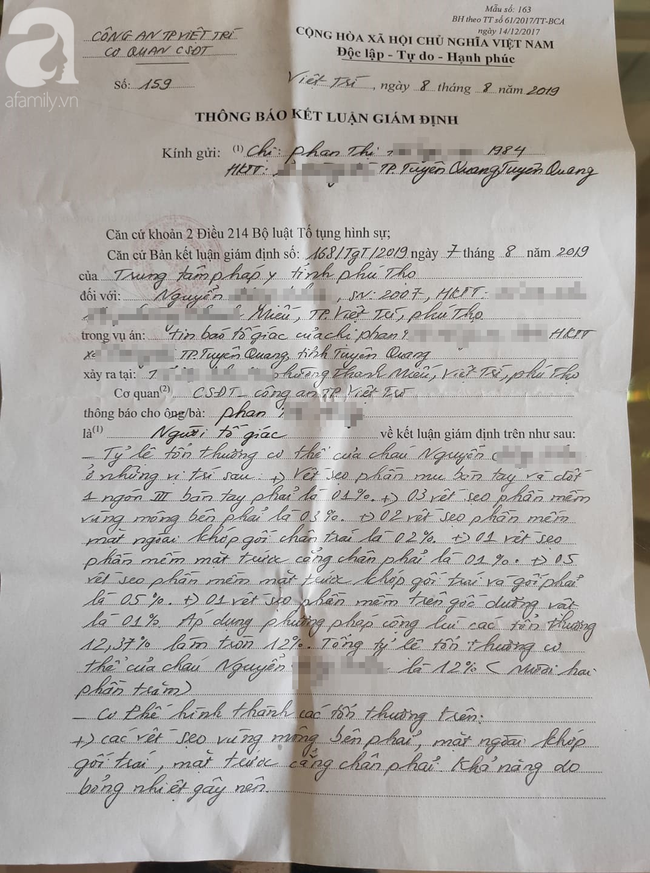 Mẫu số: 163
BH theo TT số 61/2017/TT-BCA
ngày 14/12/2017
CÔNG AN TP VIỆT TRÌ
CƠ QUAN CSĐT
CỘNG HÒA XÃ HỘI CHỦ NGHĨA VIỆT NAM
Độc lập - Tự do - Hạnh phúc
Số: 159
Việt Trì, ngày 8 tháng 8 năm 2019
afamily.vn
THÔNG BÁO KẾT LUẬN GIÁM ĐỊNH
Kính gửi: (1) Chị: Phan Thị 1984
HKTT: TP. Tuyên Quang Tuyên Quang
Căn cứ khoản 2 Điều 214 Bộ luật Tố tụng hình sự;
Căn cứ Bản kết luận giám định số: 168/TgT/2019 ngày 7 tháng 8 năm 2019
của Trung tâm pháp y tỉnh phú Thọ
đối với: Nguyễn , SN: 2007, HKTT:
Miếu, TP. Việt Trì, phú Thọ
trong vụ án: tin báo tố giác của chị phan HKTT
TP. Tuyên Quang, tỉnh Tuyên Quang
xảy ra tại: phường thanh Miếu, Việt Trì, phú Thọ
Cơ quan(2) CSĐT - công an TP. Việt Trì
thông báo cho ông/bà: phan
là(1) Người tố giác về kết luận giám định trên như sau:
- Tỷ lệ tổn thương cơ thể của cháu Nguyễn
ở những vị trí sau: +) Vết sẹo phần mu bàn tay và đốt
1 ngón III bàn tay phải là 01%. +) 03 vết sẹo phần mềm
vùng mông bên phải là 03%. +) 02 vết sẹo phần mềm
mặt ngoài khớp gối chân trái là 02%. +) 01 vết sẹo
phần mềm mặt trước cẳng chân phải là 01%. +) 05
vết sẹo phần mềm mặt trước khớp gối trái và gối phải
là 05%. +) 01 vết sẹo phần mềm trên gốc dương vật
là 01%. Áp dụng phương pháp cộng lùi các tổn thương
12,37% làm tròn 12%. Tổng tỷ lệ tổn thương cơ
thể của cháu Nguyễn là 12% (Mười hai
phần trăm)
- Cơ chế hình thành các tổn thương trên:
+) các vết sẹo vùng mông bên phải, mặt ngoài khớp
gối trái, mặt trước cẳng chân phải. Khả năng do
bỏng nhiệt gây nên.